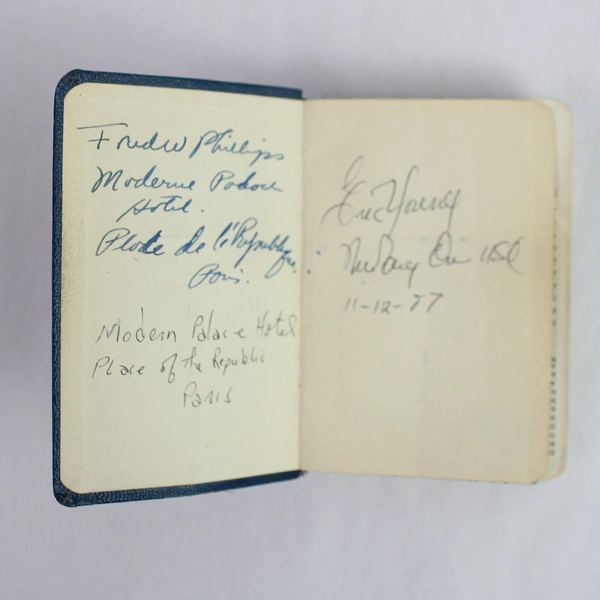 Fred W Phillips
Moderne Palace
Hotel.
Place de la République
Paris.
Modern Palace Hotel
Place of the Republic
Paris
Eric Young
USA
11-12-77